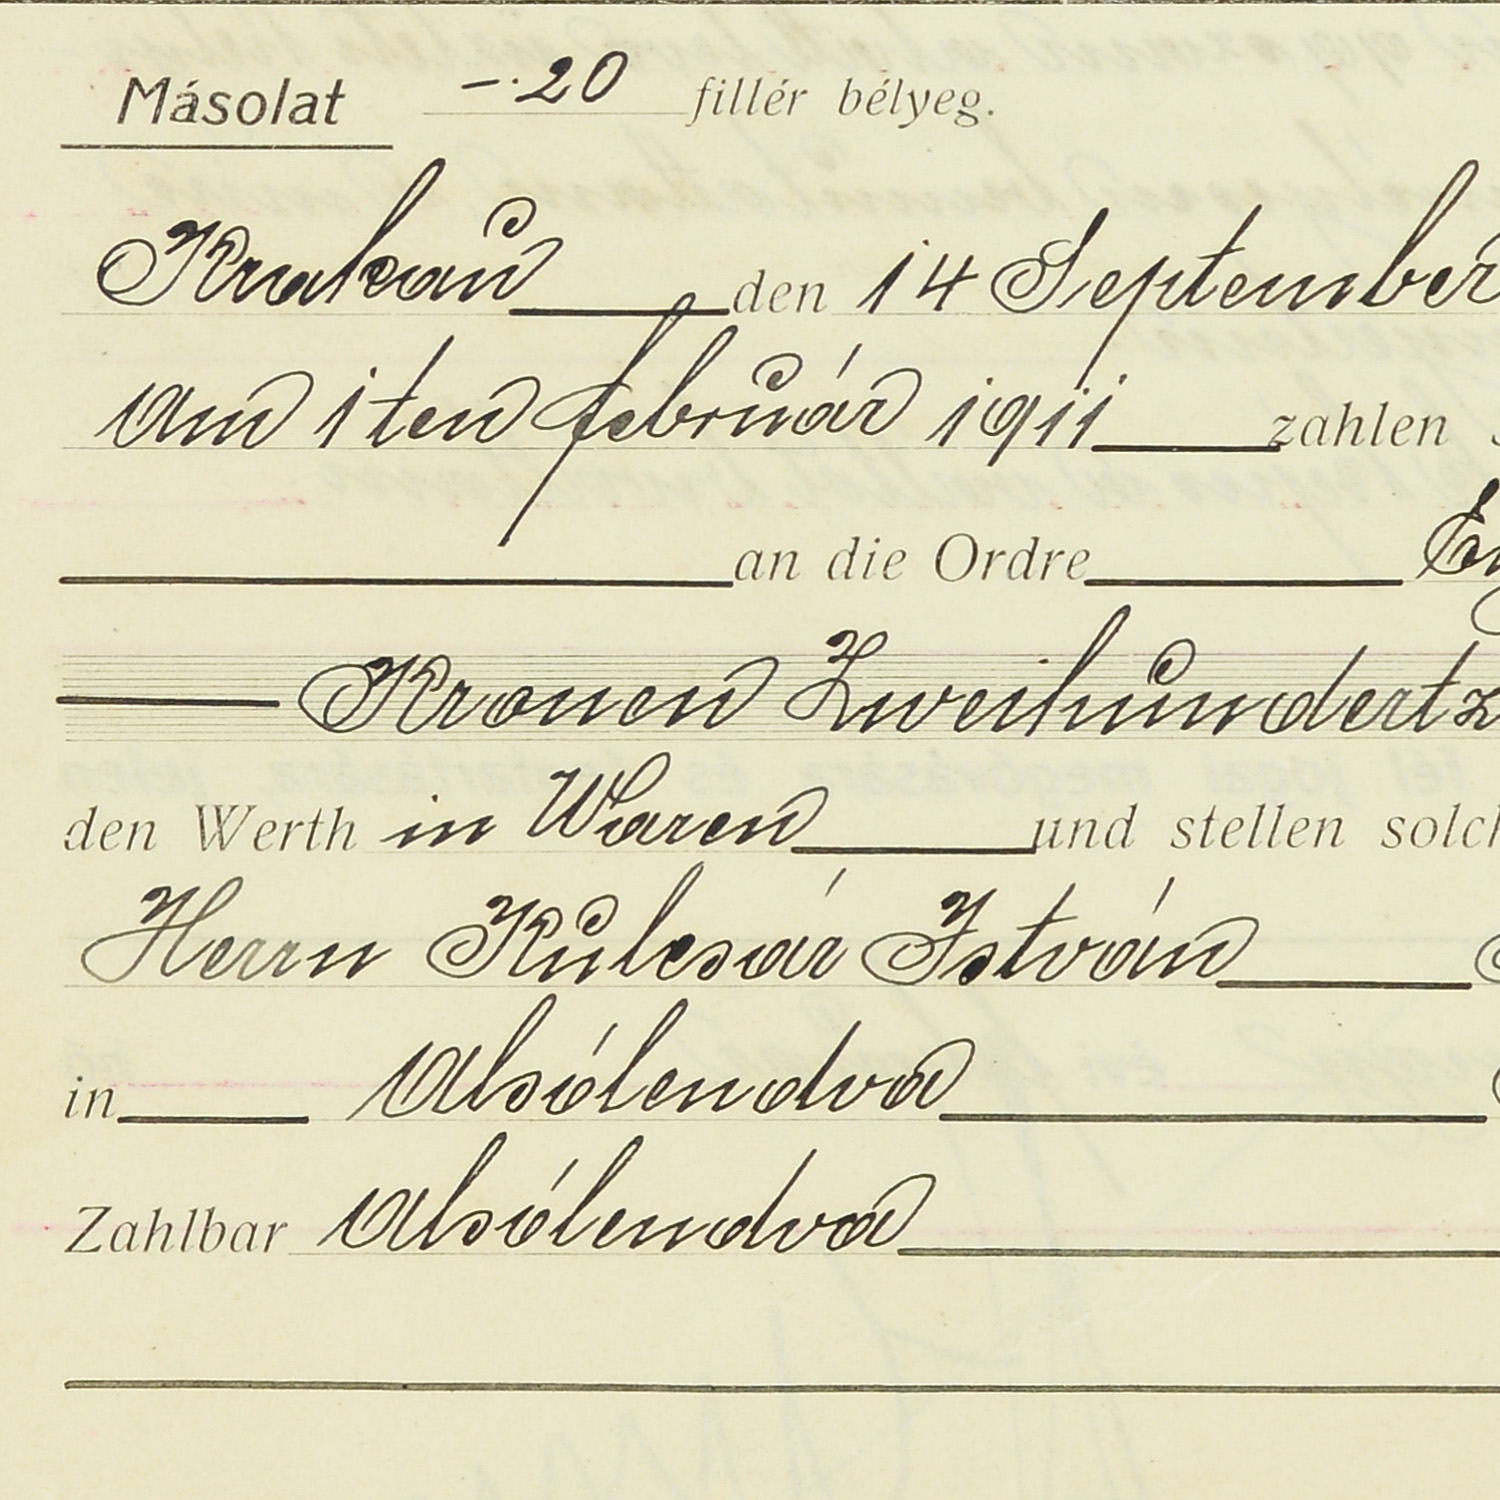 Másolat -.20 fillér bélyeg.
Krakau den 14 September
Am 1ten február 1911 zahlen
an die Ordre
Kronen Zweihundertz
den Werth in Waren und stellen solch
Herrn Kulcsár István
in Alsólendva
Zahlbar Alsólendva